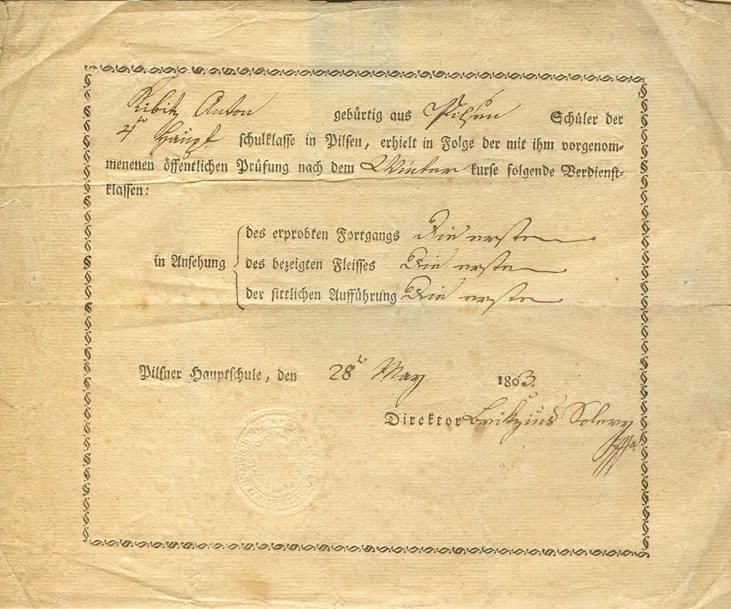 Ribitz Anton gebürtig aus Pilsen Schüler der
2r Haupt schulklasse in Pilsen, erhielt in Folge der mit ihm vorgenom-
menenen öffentlichen Prüfung nach dem Winter kurse folgende Verdienst-
klassen:
in Ansehung
des erprobten Fortgangs Die ersten
des bezeigten Fleisses Die ersten
der sittlichen Aufführung Die ersten
Pilsner Hauptschule, den 28n May 1803.
Direktor